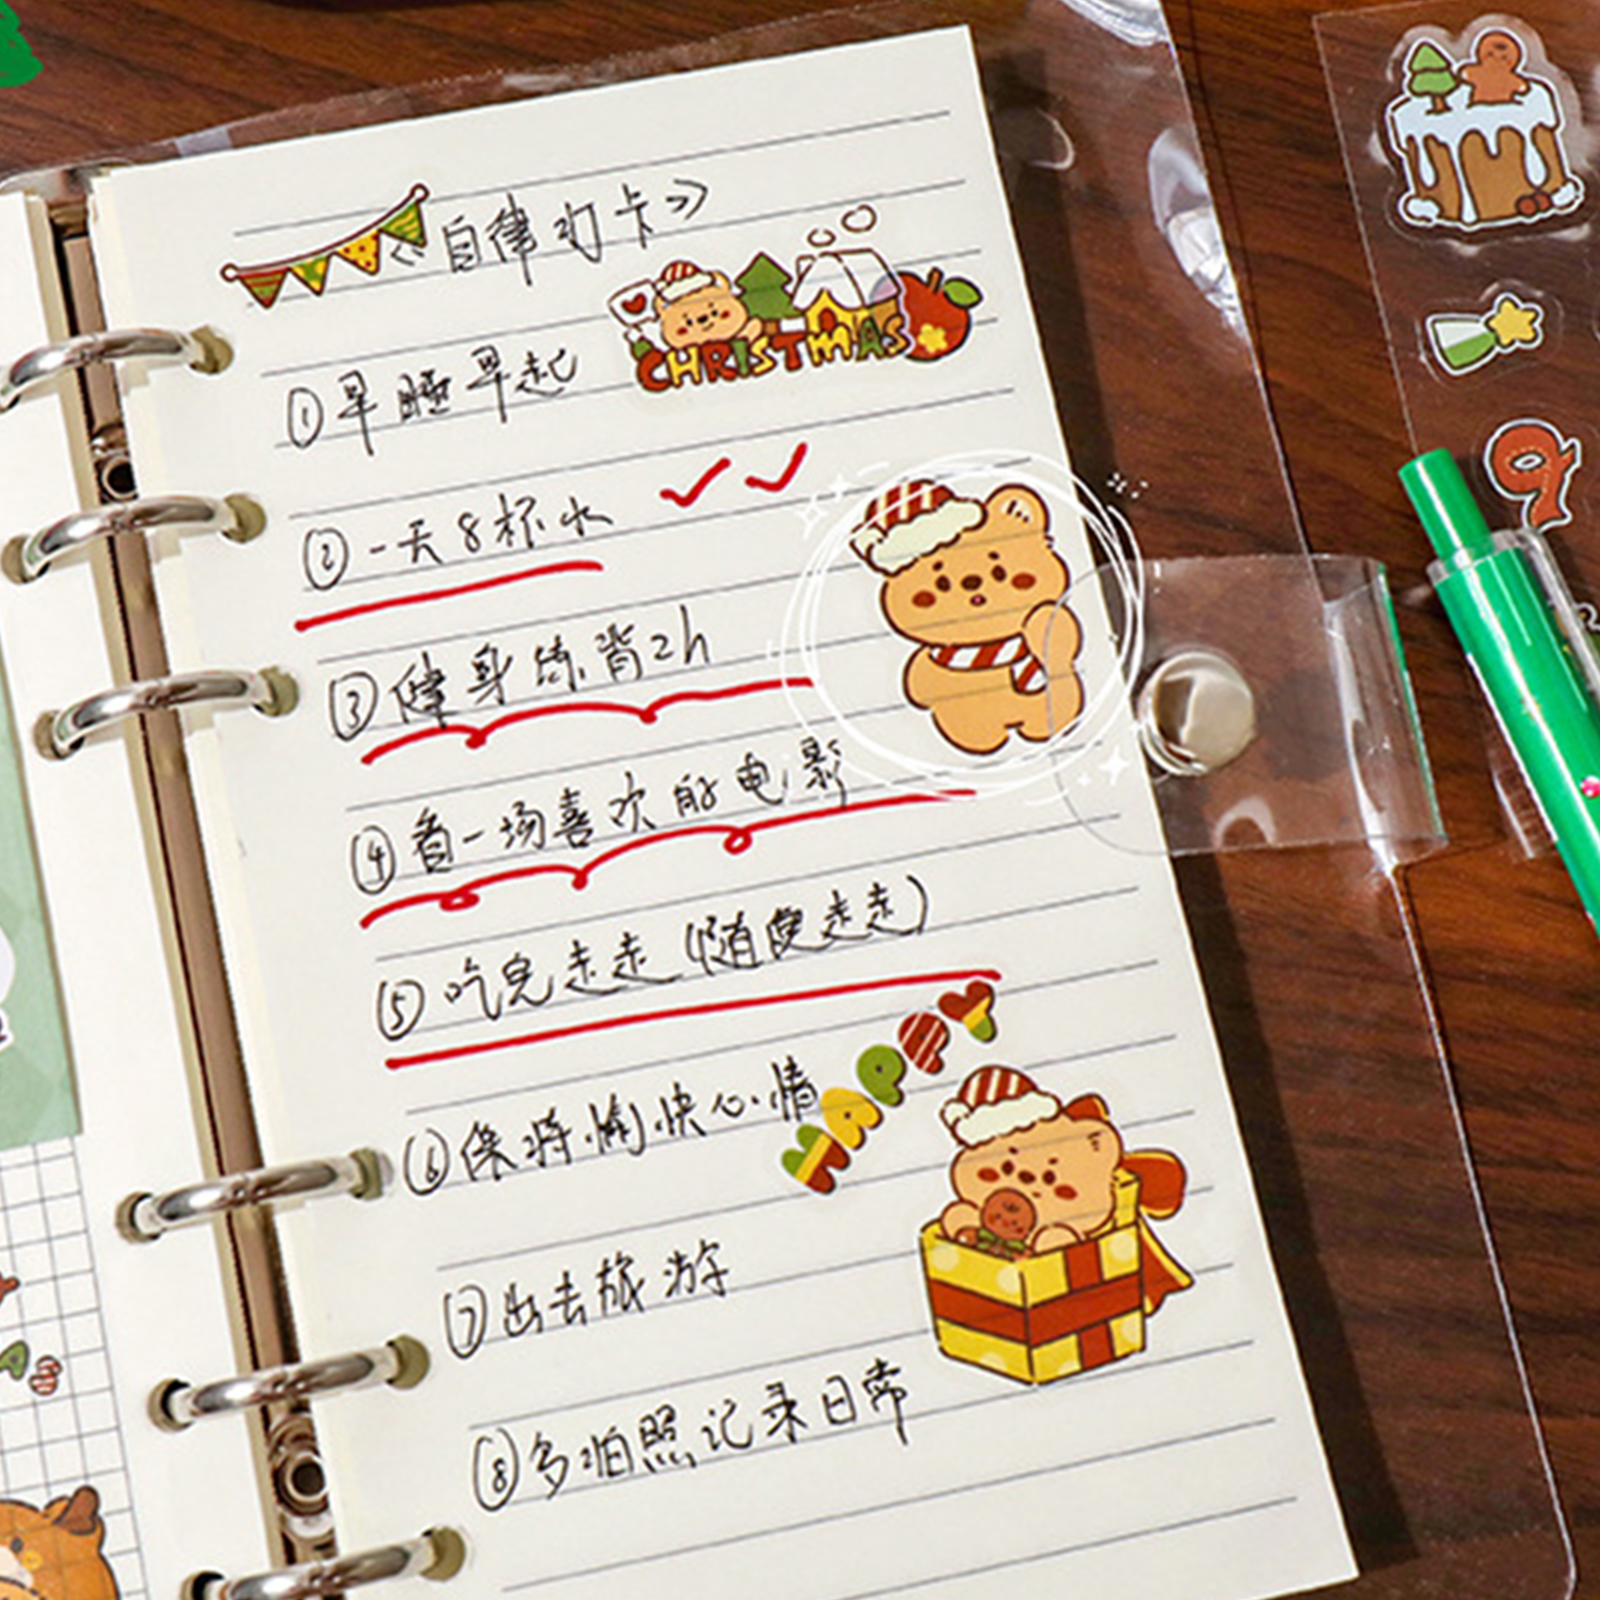 《自律打卡》
CHRISTMAS
①早睡早起
②一天8杯水
③健身练背2h
④看一场喜欢的电影
⑤吃完走走(随便走走)
⑥保持愉快心情
HAPPY
⑦出去旅游
⑧多拍照记录日常
9